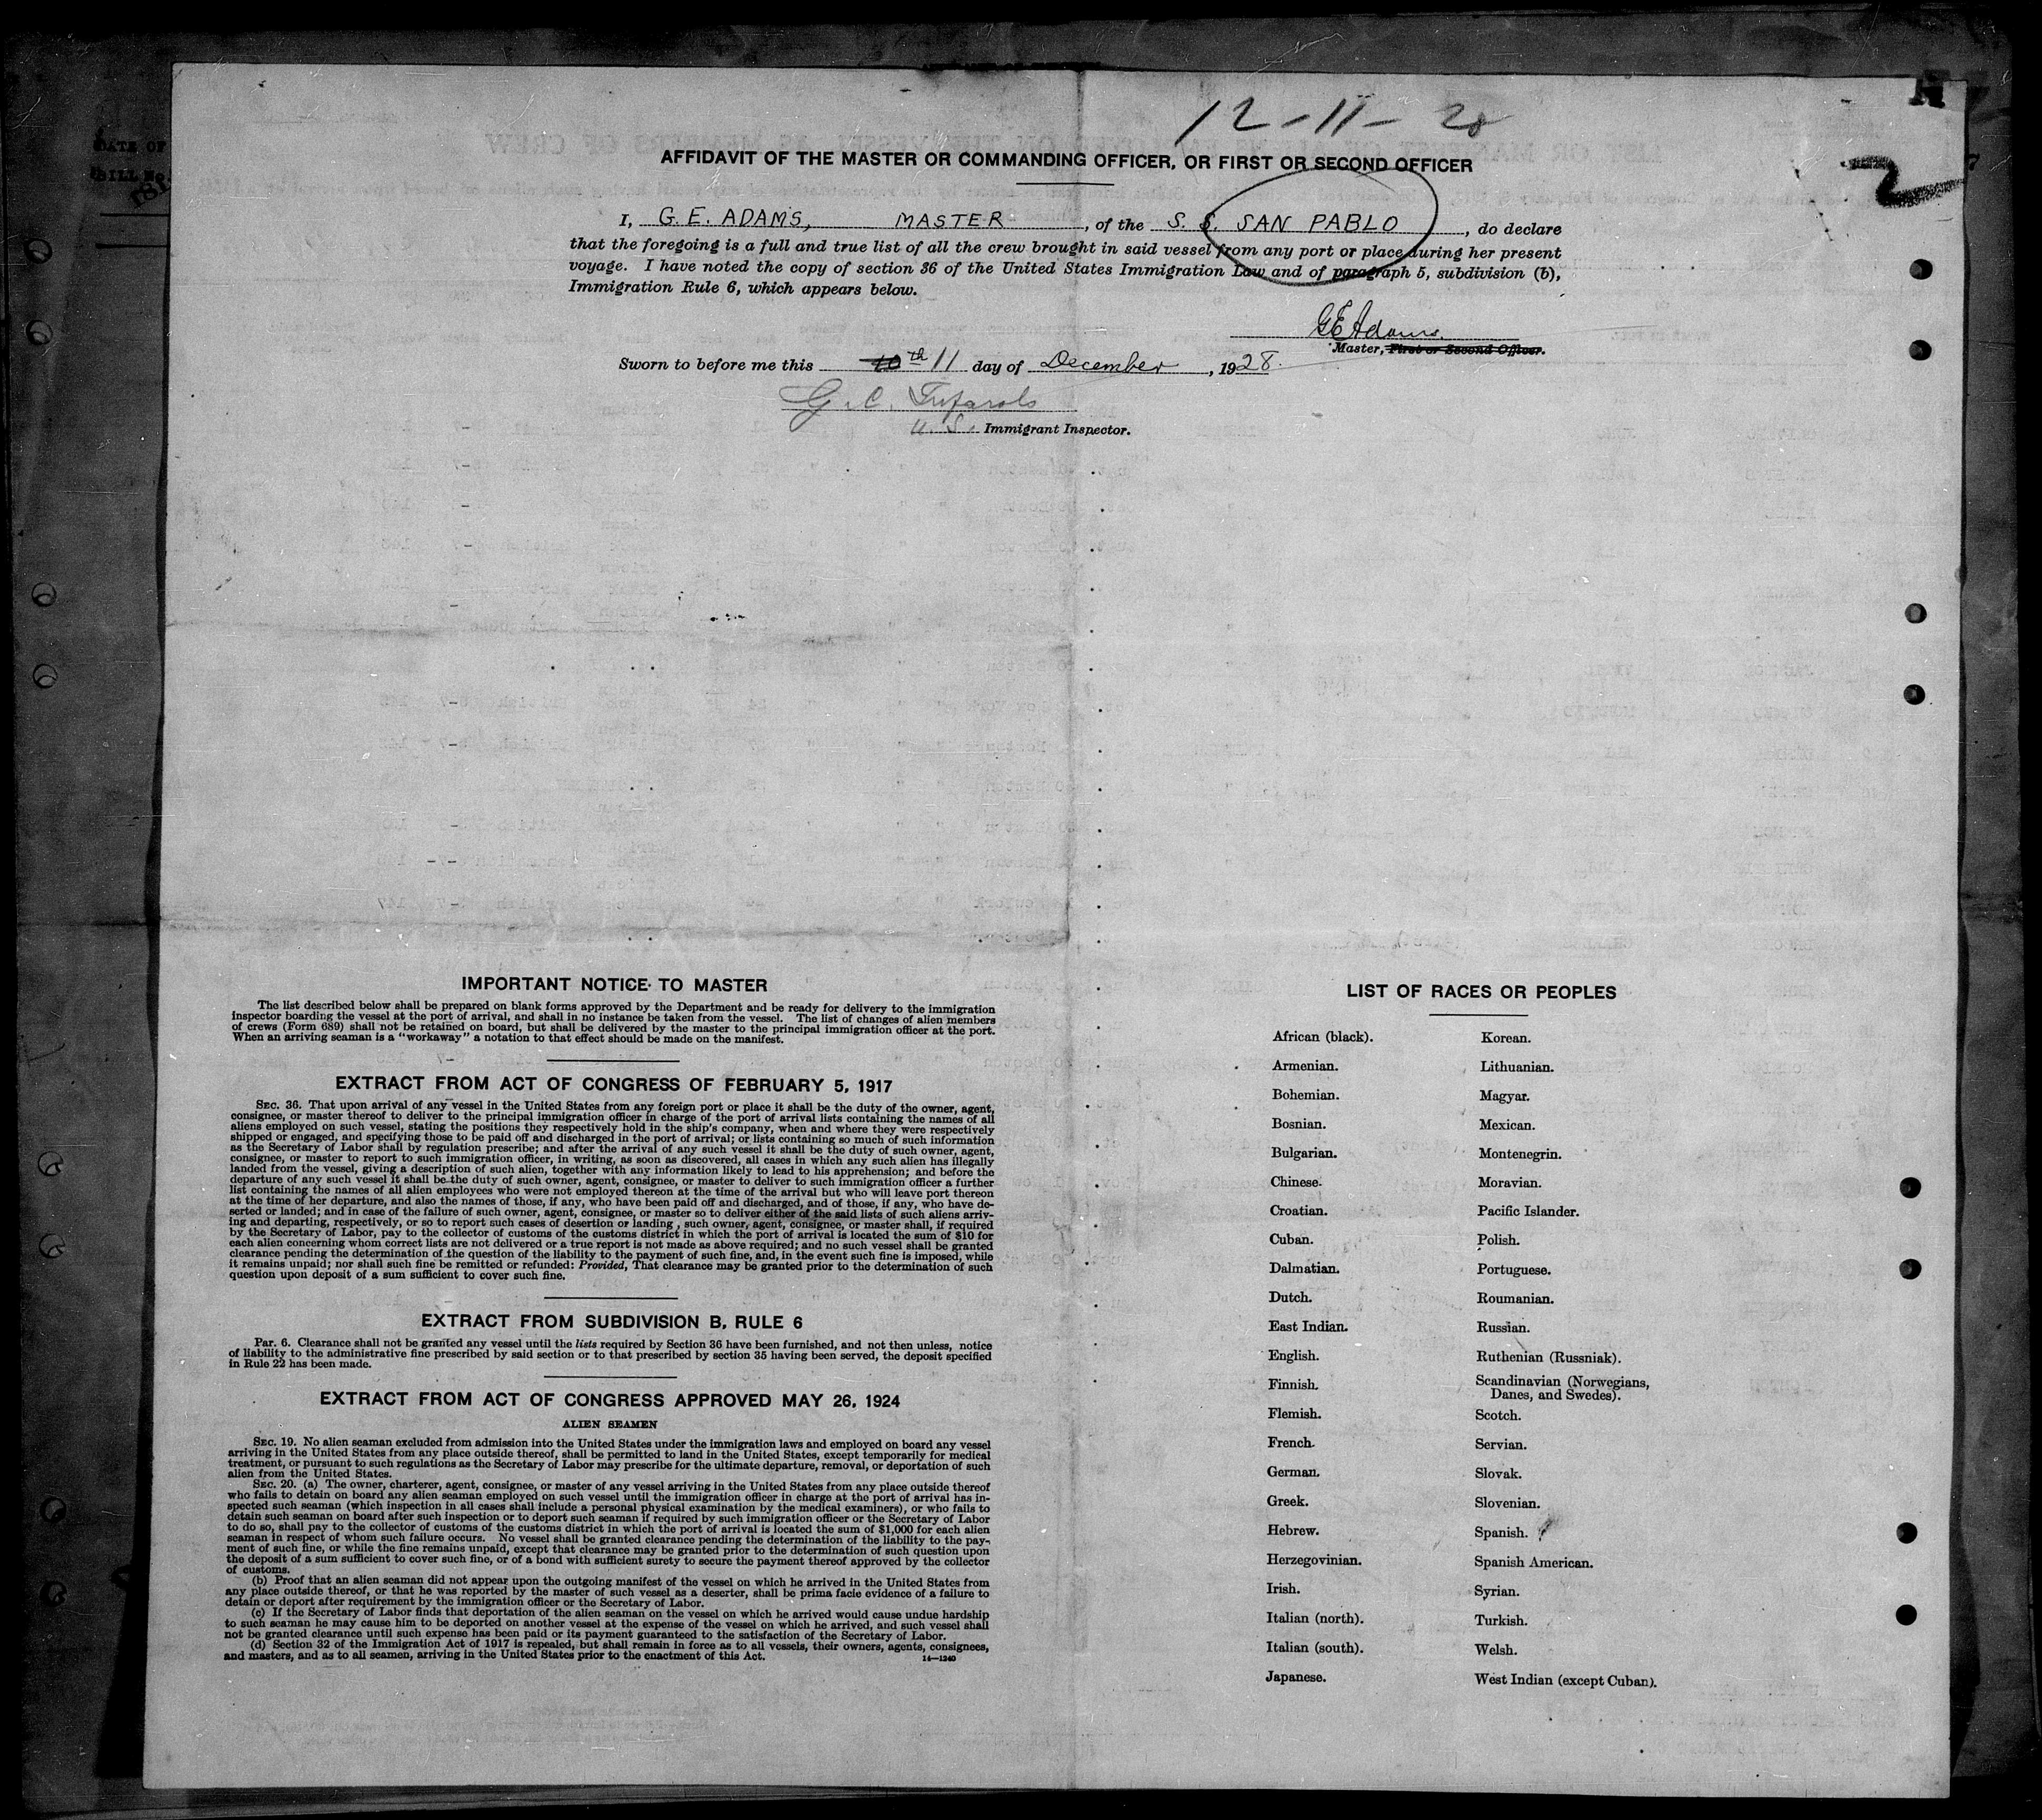 12-11-28
AFFIDAVIT OF THE MASTER OR COMMANDING OFFICER, OR FIRST OR SECOND OFFICER
I, G. E. ADAMS, MASTER, of the S. S. SAN PABLO, do declare
that the foregoing is a full and true list of all the crew brought in said vessel from any port or place during her present
voyage. I have noted the copy of section 36 of the United States Immigration Law and of paragraph 5, subdivision (b),
Immigration Rule 6, which appears below.
G E Adams.
Master, First or Second Officer.
Sworn to before me this 10th 11 day of December, 1928.
G. C.
U. S. Immigrant Inspector.
IMPORTANT NOTICE TO MASTER
The list described below shall be prepared on blank forms approved by the Department and be ready for delivery to the immigration
inspector boarding the vessel at the port of arrival, and shall in no instance be taken from the vessel. The list of changes of alien members
of crews (Form 689) shall not be retained on board, but shall be delivered by the master to the principal immigration officer at the port.
When an arriving seaman is a "workaway" a notation to that effect should be made on the manifest.
EXTRACT FROM ACT OF CONGRESS OF FEBRUARY 5, 1917
SEC. 36. That upon arrival of any vessel in the United States from any foreign port or place it shall be the duty of the owner, agent,
consignee, or master thereof to deliver to the principal immigration officer in charge of the port of arrival lists containing the names of all
aliens employed on such vessel, stating the positions they respectively hold in the ship's company, when and where they were respectively
shipped or engaged, and specifying those to be paid off and discharged in the port of arrival; or lists containing so much of such information
as the Secretary of Labor shall by regulation prescribe; and after the arrival of any such vessel it shall be the duty of such owner, agent,
consignee, or master to report to such immigration officer, in writing, as soon as discovered, all cases in which any such alien has illegally
landed from the vessel, giving a description of such alien, together with any information likely to lead to his apprehension; and before the
departure of any such vessel it shall be the duty of such owner, agent, consignee, or master to deliver to such immigration officer a further
list containing the names of all alien employees who were not employed thereon at the time of the arrival but who will leave port thereon
at the time of her departure, and also the names of those, if any, who have been paid off and discharged, and of those, if any, who have de-
serted or landed; and in case of the failure of such owner, agent, consignee, or master so to deliver either of the said lists of such aliens arriv-
ing and departing, respectively, or so to report such cases of desertion or landing, such owner, agent, consignee, or master shall, if required
by the Secretary of Labor, pay to the collector of customs of the customs district in which the port of arrival is located the sum of $10 for
each alien concerning whom correct lists are not delivered or a true report is not made as above required; and no such vessel shall be granted
clearance pending the determination of the question of the liability to the payment of such fine, and, in the event such fine is imposed, while
it remains unpaid; nor shall such fine be remitted or refunded: Provided, That clearance may be granted prior to the determination of such
question upon deposit of a sum sufficient to cover such fine.
EXTRACT FROM SUBDIVISION B, RULE 6
Par. 6. Clearance shall not be granted any vessel until the lists required by Section 36 have been furnished, and not then unless, notice
of liability to the administrative fine prescribed by said section or to that prescribed by section 35 having been served, the deposit specified
in Rule 22 has been made.
EXTRACT FROM ACT OF CONGRESS APPROVED MAY 26, 1924
ALIEN SEAMEN
SEC. 19. No alien seaman excluded from admission into the United States under the immigration laws and employed on board any vessel
arriving in the United States from any place outside thereof, shall be permitted to land in the United States, except temporarily for medical
treatment, or pursuant to such regulations as the Secretary of Labor may prescribe for the ultimate departure, removal, or deportation of such
alien from the United States.
SEC. 20. (a) The owner, charterer, agent, consignee, or master of any vessel arriving in the United States from any place outside thereof
who fails to detain on board any alien seaman employed on such vessel until the immigration officer in charge at the port of arrival has in-
spected such seaman (which inspection in all cases shall include a personal physical examination by the medical examiners), or who fails to
detain such seaman on board after such inspection or to deport such seaman if required by such immigration officer or the Secretary of Labor
to do so, shall pay to the collector of customs of the customs district in which the port of arrival is located the sum of $1,000 for each alien
seaman in respect of whom such failure occurs. No vessel shall be granted clearance pending the determination of the liability to the pay-
ment of such fine, or while the fine remains unpaid, except that clearance may be granted prior to the determination of such question upon
the deposit of a sum sufficient to cover such fine, or of a bond with sufficient surety to secure the payment thereof approved by the collector
of customs.
(b) Proof that an alien seaman did not appear upon the outgoing manifest of the vessel on which he arrived in the United States from
any place outside thereof, or that he was reported by the master of such vessel as a deserter, shall be prima facie evidence of a failure to
detain or deport after requirement by the immigration officer or the Secretary of Labor.
(c) If the Secretary of Labor finds that deportation of the alien seaman on the vessel on which he arrived would cause undue hardship
to such seaman he may cause him to be deported on another vessel at the expense of the vessel on which he arrived, and such vessel shall
not be granted clearance until such expense has been paid or its payment guaranteed to the satisfaction of the Secretary of Labor.
(d) Section 32 of the Immigration Act of 1917 is repealed, but shall remain in force as to all vessels, their owners, agents, consignees,
and masters, and as to all seamen, arriving in the United States prior to the enactment of this Act.
14—1240
LIST OF RACES OR PEOPLES
African (black).
Armenian.
Bohemian.
Bosnian.
Bulgarian.
Chinese.
Croatian.
Cuban.
Dalmatian.
Dutch.
East Indian.
English.
Finnish.
Flemish.
French.
German.
Greek.
Hebrew.
Herzegovinian.
Irish.
Italian (north).
Italian (south).
Japanese.
Korean.
Lithuanian.
Magyar.
Mexican.
Montenegrin.
Moravian.
Pacific Islander.
Polish.
Portuguese.
Roumanian.
Russian.
Ruthenian (Russniak).
Scandinavian (Norwegians,
Danes, and Swedes).
Scotch.
Servian.
Slovak.
Slovenian.
Spanish.
Spanish American.
Syrian.
Turkish.
Welsh.
West Indian (except Cuban).